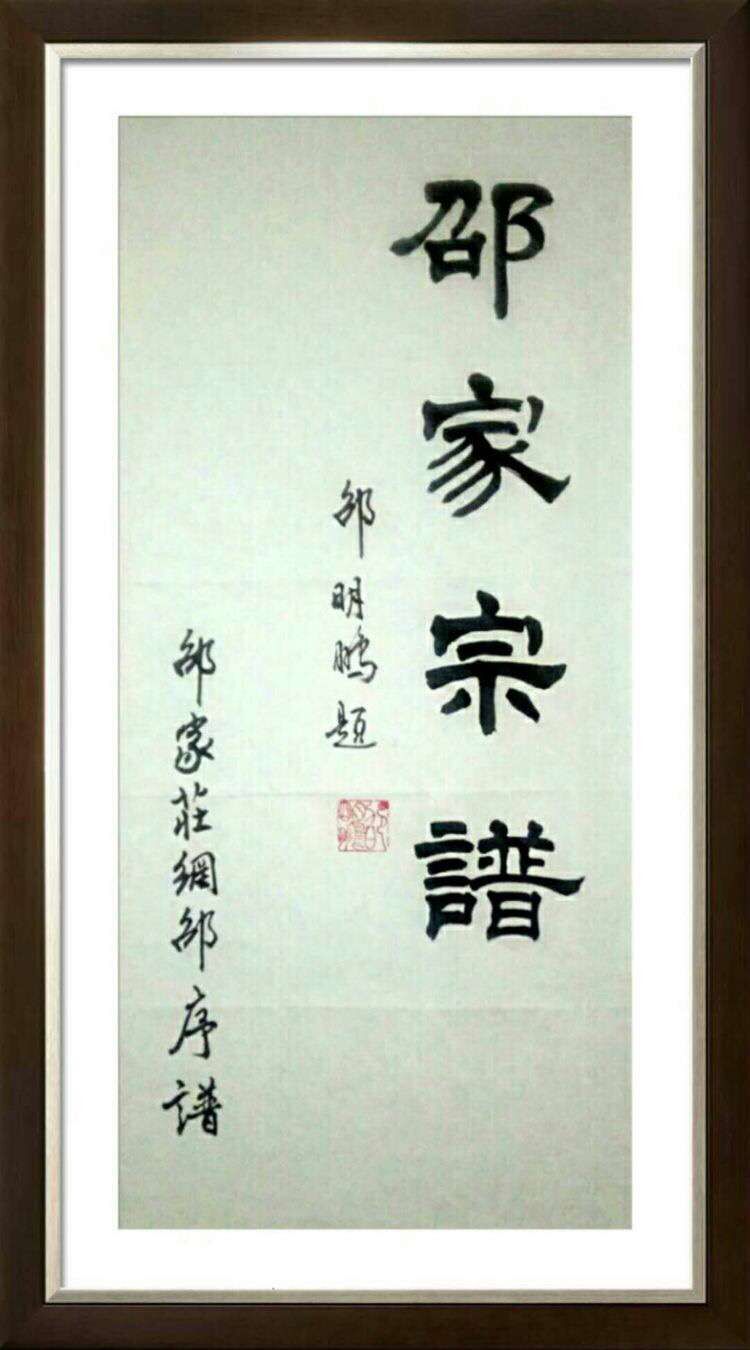 邵家宗譜
邵明鵬題
邵家莊網邵序譜